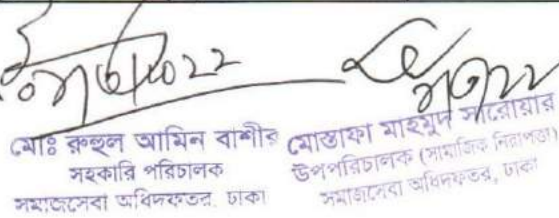 মোঃ রুহুল আমিন বাশীর
সহকারি পরিচালক
সমাজসেবা অধিদফতর, ঢাকা
মোস্তাফা মাহমুদ সারোয়ার
উপপরিচালক (সামাজিক নিরাপত্তা)
সমাজসেবা অধিদফতর, ঢাকা